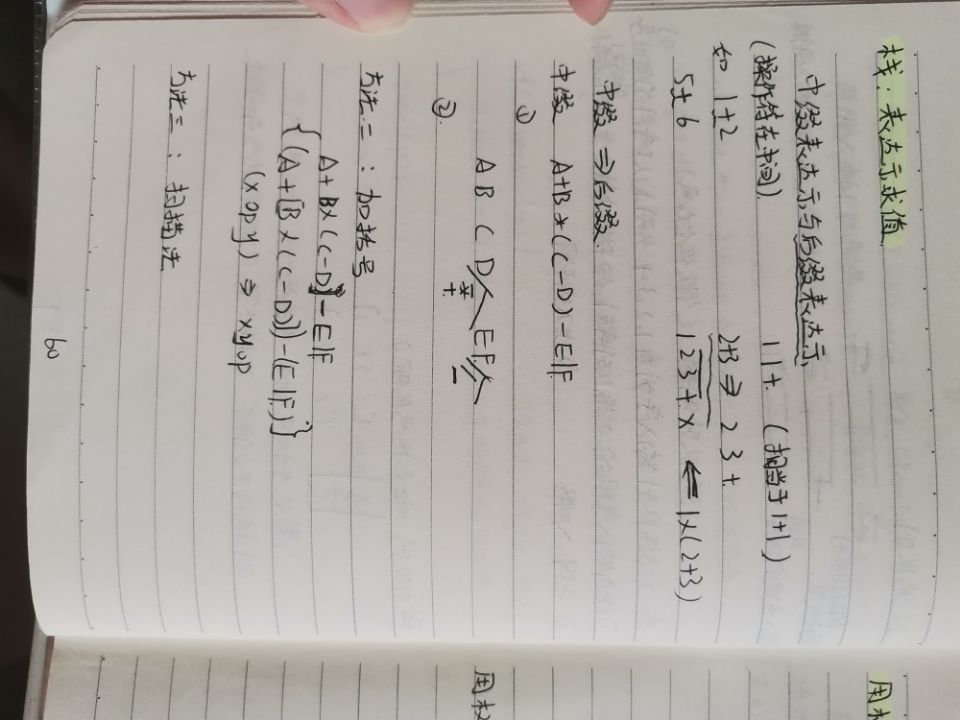 栈：表达示求值
中缀表达示与后缀表达示
(操作符在中间) 11+ (相当于1+1)
如 1+2 2+3 ⇒ 2 3 +
5+6 1 2 3 + × ⇐ 1×(2+3)
中缀 ⇒ 后缀
中缀 A+B×(C-D)-E/F
①
A B C D
E F
②
方法二：加括号
A+B×(C-D)-E/F
{(A+[B×(C-D)])-(E/F)}
(x op y) ⇒ xy op
方法三：扫描法
60
用
用